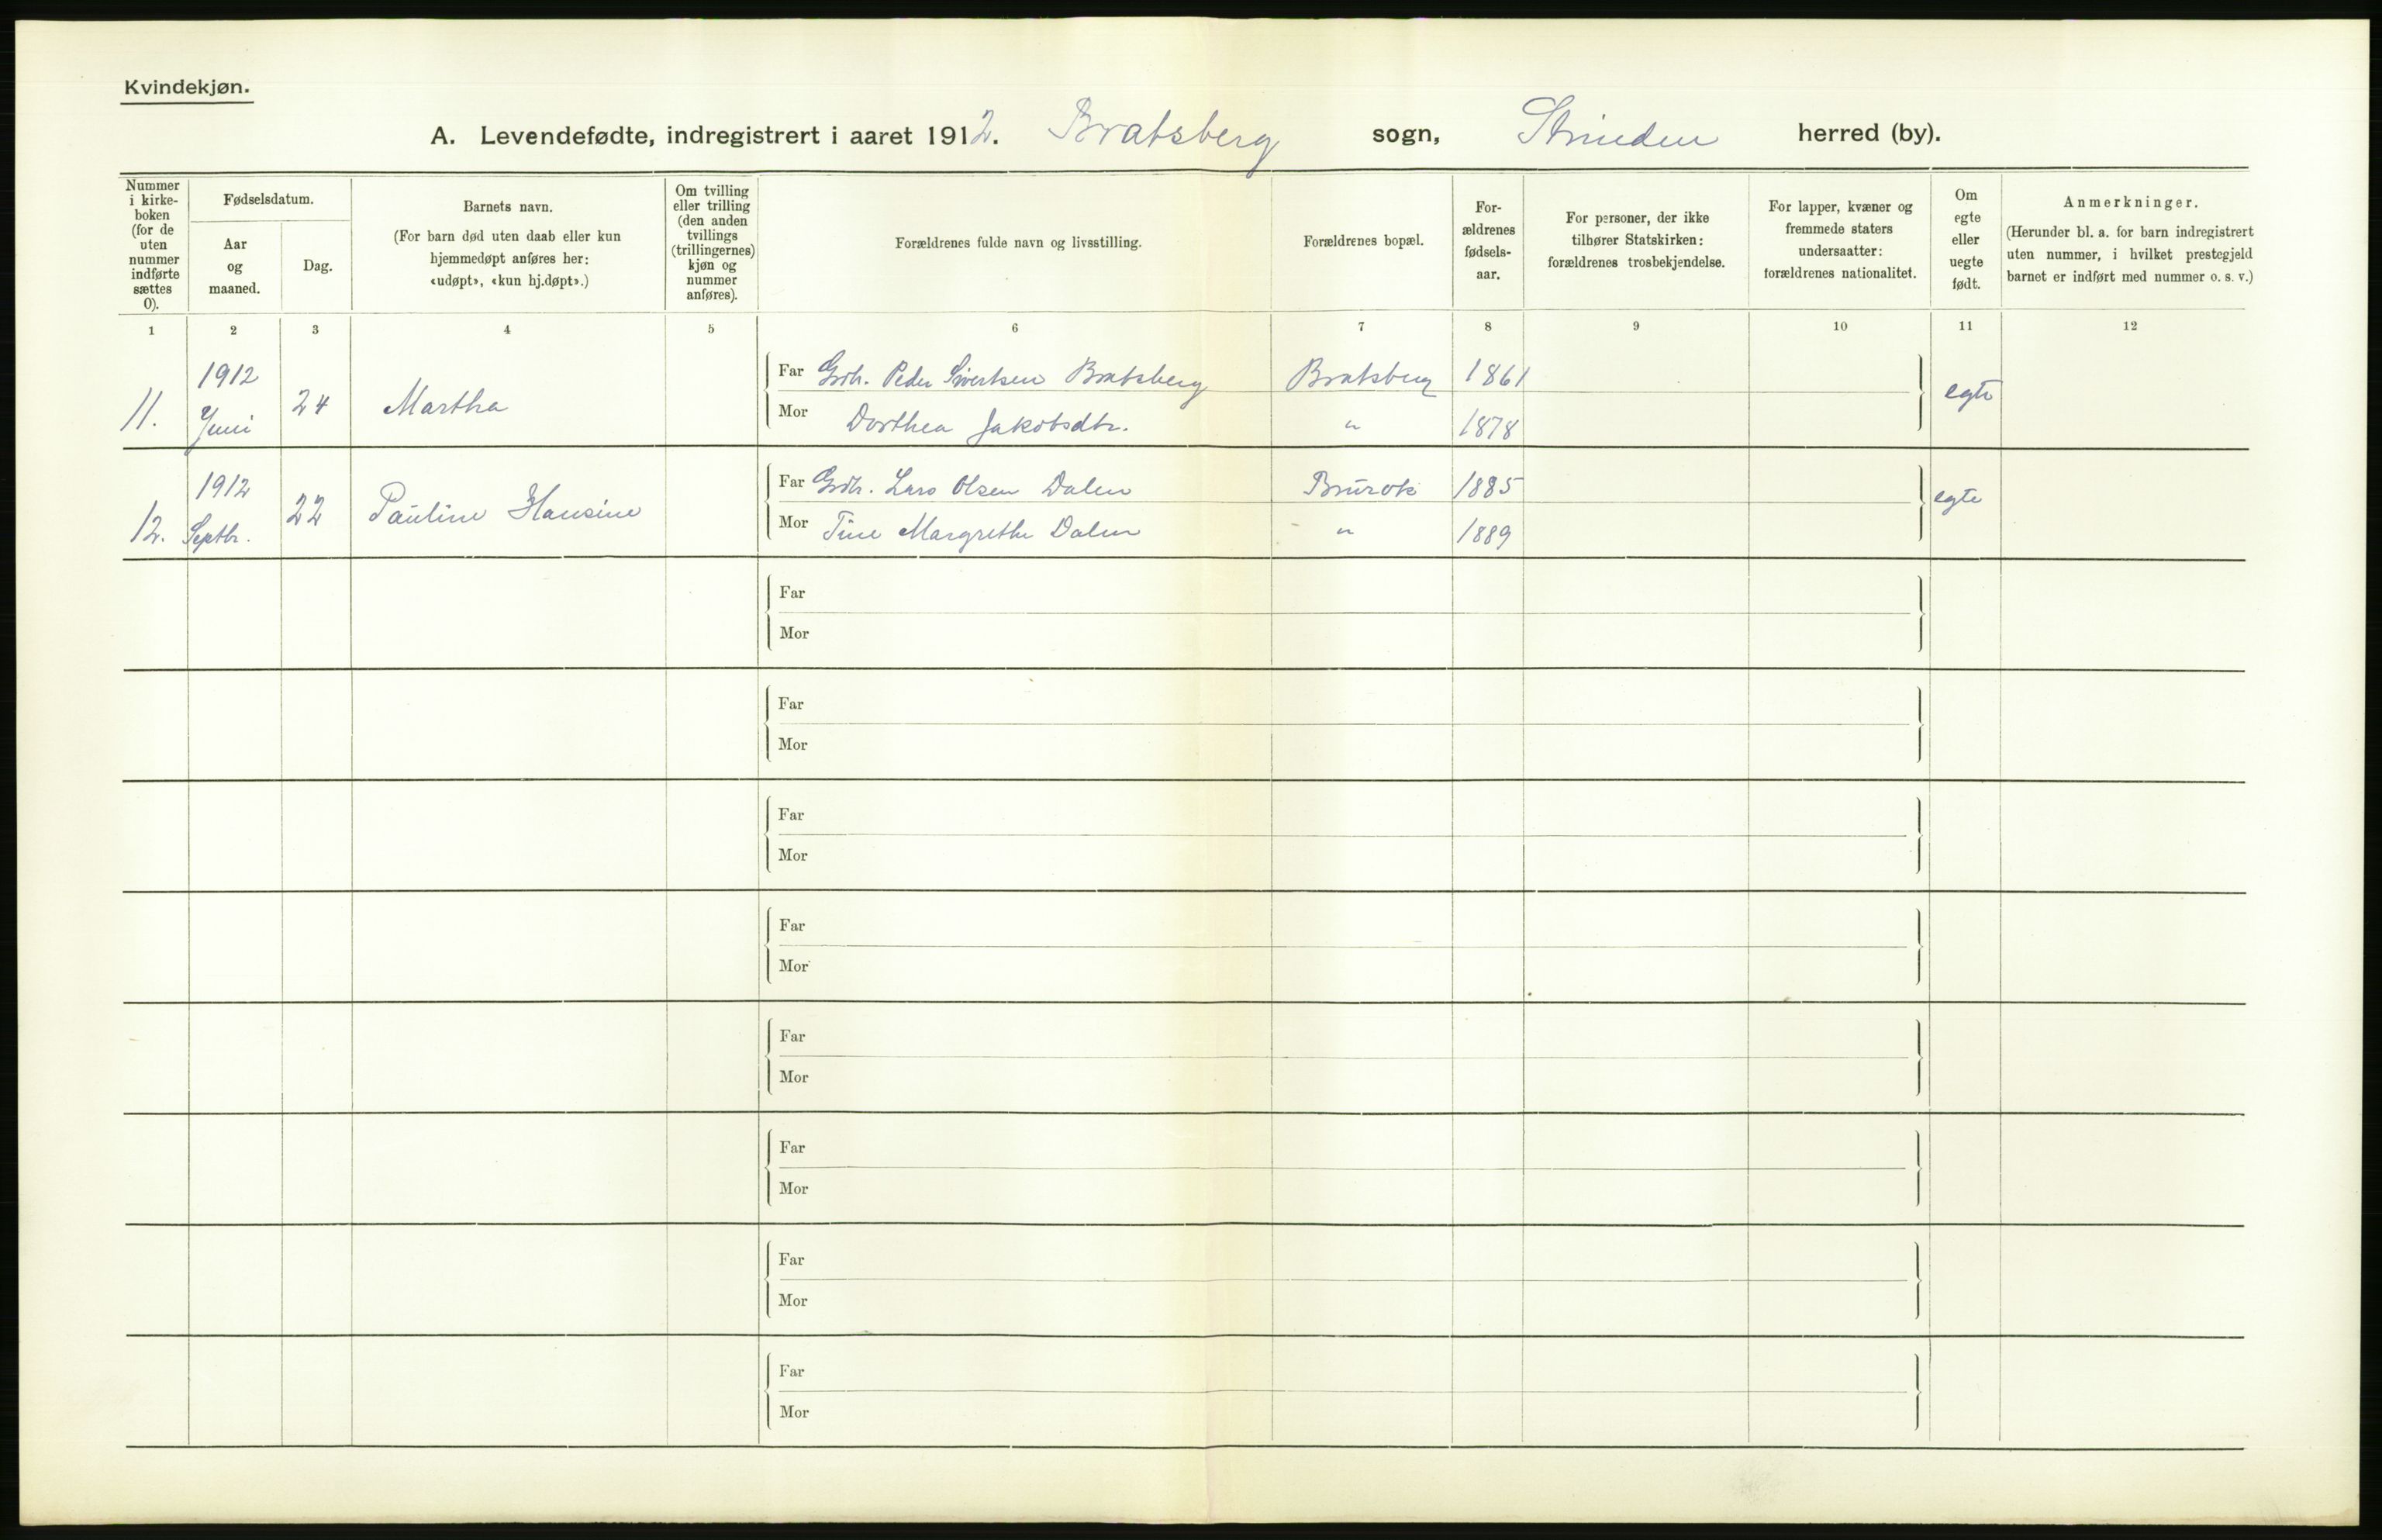 Kvindekjøn.
A. Levendefødte, indregistrert i aaret 1912. Bratsberg sogn, Strinden herred (by).
Nummer i kirke- boken (for de uten nummer indførte sættes 0).
Fødselsdatum.
Aar og maaned.
Dag.
Barnets navn.
(For barn død uten daab eller kun hjemmedøpt anføres her: «udøpt», «kun hj.døpt».)
Om tvilling eller trilling (den anden tvillings (trillingernes) kjøn og nummer anføres).
Forældrenes fulde navn og livsstilling.
Forældrenes bopæl.
For- ældrenes fødsels- aar.
For personer, der ikke tilhører Statskirken: forældrenes trosbekjendelse.
For lapper, kvæner og fremmede staters undersaatter: forældrenes nationalitet.
Om egte eller uegte født.
Anmerkninger.
(Herunder bl. a. for barn indregistrert uten nummer, i hvilket prestegjeld barnet er indført med nummer o. s. v.)
1 2 3 4 5 6 7 8 9 10 11 12
1912 Far Grdb. Peder Sivertsen Bratsberg Bratsberg 1861
11. Juni 24 Martha Mor Dorthea Jakobsdtr. " 1878 egte
1912 Far Grdb. Lars Olsen Dalen Brurok 1885
12. Septbr. 22 Pauline Hansine Mor Tine Margrethe Dalen " 1889 egte
Far
Mor
Far
Mor
Far
Mor
Far
Mor
Far
Mor
Far
Mor
Far
Mor
Far
Mor